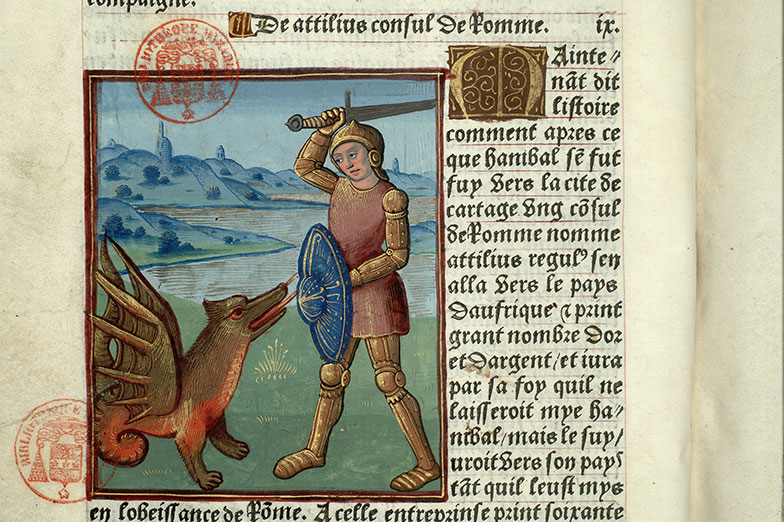 compaignie.
De attilius consul de Romme. ix.
Mainte⸗
nāt dit
listoire
comment apres ce
que hanibal sē fut
fuy vers la cite de
cartage vng cōsul
de Romme nomme
attilius regulꝰ sen
alla vers le pays
daufrique ⁊ print
grant nombre dor
et dargent/et iura
par sa foy quil ne
laisseroit mye ha⸗
nibal/mais le suy/
uroit vers son pays
tāt quil leust mys
en lobeissance de Rōme. A celle entreprinse print soixante